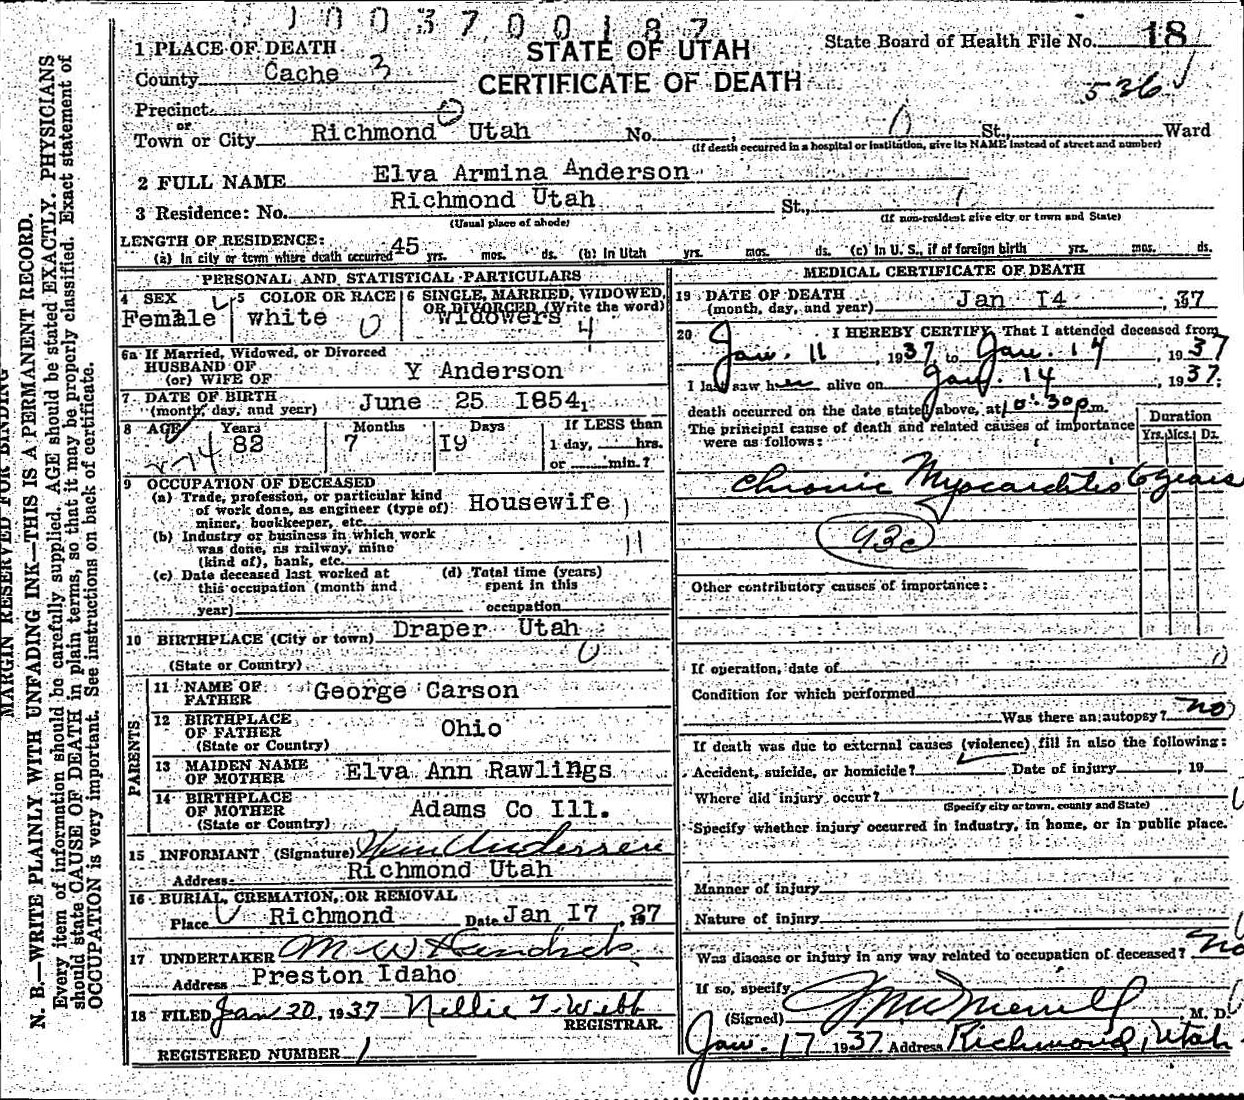 1003700187
1 PLACE OF DEATH
STATE OF UTAH
State Board of Health File No. 18
County Cache 3
CERTIFICATE OF DEATH
536
Precinct 0
or
Town or City Richmond Utah No. , 0 St., Ward
(If death occurred in a hospital or institution, give its NAME instead of street and number)
2 FULL NAME Elva Armina Anderson
3 Residence: No. Richmond Utah St.,
(Usual place of abode) (If non-resident give city or town and State)
LENGTH OF RESIDENCE:
(a) In city or town where death occurred 45 yrs. mos. ds. (b) In Utah yrs. mos. ds. (c) In U. S., if of foreign birth yrs. mos. ds.
PERSONAL AND STATISTICAL PARTICULARS
4 SEX 5 COLOR OR RACE 6 SINGLE, MARRIED, WIDOWED, OR DIVORCED (Write the word)
Female white 0 widowers 4
6a If Married, Widowed, or Divorced
HUSBAND OF
(or) WIFE OF Y Anderson
7 DATE OF BIRTH
(month, day, and year) June 25 1854
8 AGE Years Months Days If LESS than
82 7 19 1 day, hrs.
or min.?
9 OCCUPATION OF DECEASED
(a) Trade, profession, or particular kind
of work done, as engineer (type of) Housewife
miner, bookkeeper, etc.
(b) Industry or business in which work
was done, as railway, mine 11
(kind of), bank, etc.
(c) Date deceased last worked at (d) Total time (years)
this occupation (month and spent in this
year) occupation
10 BIRTHPLACE (City or town) Draper Utah
(State or Country) 0
PARENTS
11 NAME OF
FATHER George Carson
12 BIRTHPLACE
OF FATHER Ohio
(State or Country)
13 MAIDEN NAME
OF MOTHER Elva Ann Rawlings
14 BIRTHPLACE
OF MOTHER Adams Co Ill.
(State or Country)
15 INFORMANT (Signature) Wm Anderson
Address Richmond Utah
16 BURIAL, CREMATION, OR REMOVAL
Place Richmond Date Jan 17, 1937
17 UNDERTAKER M W Hendricks
Address Preston Idaho
18 FILED Jan 20, 1937 Nellie T. Webb
REGISTRAR
REGISTERED NUMBER 1
MEDICAL CERTIFICATE OF DEATH
19 DATE OF DEATH
(month, day, and year) Jan 14, 1937
20 I HEREBY CERTIFY, That I attended deceased from
Jan. 11, 1937, to Jan. 14, 1937
I last saw her alive on Jan. 14, 1937;
death occurred on the date stated above, at 10:30 p.m.
The principal cause of death and related causes of importance
were as follows:
Duration
Yrs. Mos. Ds.
Chronic Myocarditis 6 years
93c
Other contributory causes of importance:
If operation, date of
Condition for which performed
Was there an autopsy? no
If death was due to external causes (violence) fill in also the following:
Accident, suicide, or homicide? Date of injury , 19
Where did injury occur?
(Specify city or town, county and State)
Specify whether injury occurred in industry, in home, or in public place.
Manner of injury
Nature of injury
Was disease or injury in any way related to occupation of deceased? No
If so, specify
(Signed) Merrill, M. D.
Jan. 17 1937. Address Richmond, Utah
MARGIN RESERVED FOR BINDING
N. B.—WRITE PLAINLY WITH UNFADING INK—THIS IS A PERMANENT RECORD.
Every item of information should be carefully supplied. AGE should be stated EXACTLY. PHYSICIANS
should state CAUSE OF DEATH in plain terms, so that it may be properly classified. Exact statement of
OCCUPATION is very important. See instructions on back of certificate.